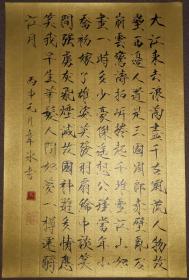 大江東去浪淘盡千古風流人物故
壘西邊人道是三國周郎赤壁亂石
崩雲驚濤拍岸捲起千堆雪江山如
畫一時多少豪傑遙想公瑾當年小
喬初嫁了雄姿英發羽扇綸巾談笑
間強虜灰飛煙滅故國神遊多情應
笑我早生華髮人間如夢一樽還酹
江月 丙申元月 冰書